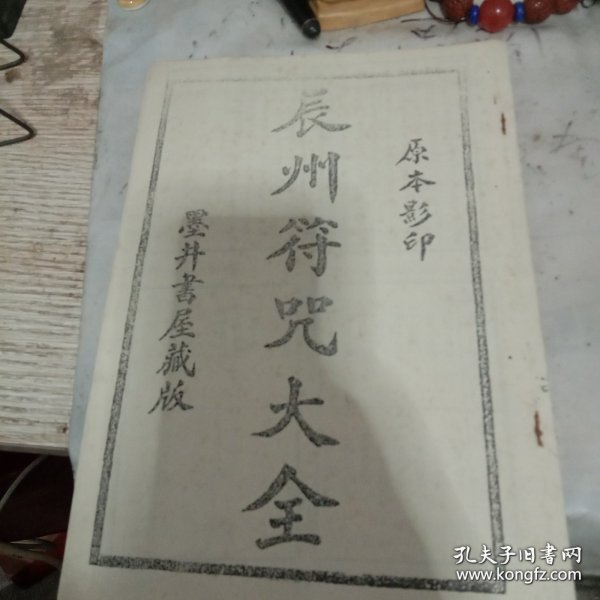 原本影印
辰州符咒大全
墨井書屋藏版
孔夫子旧书网
www.kongfz.com